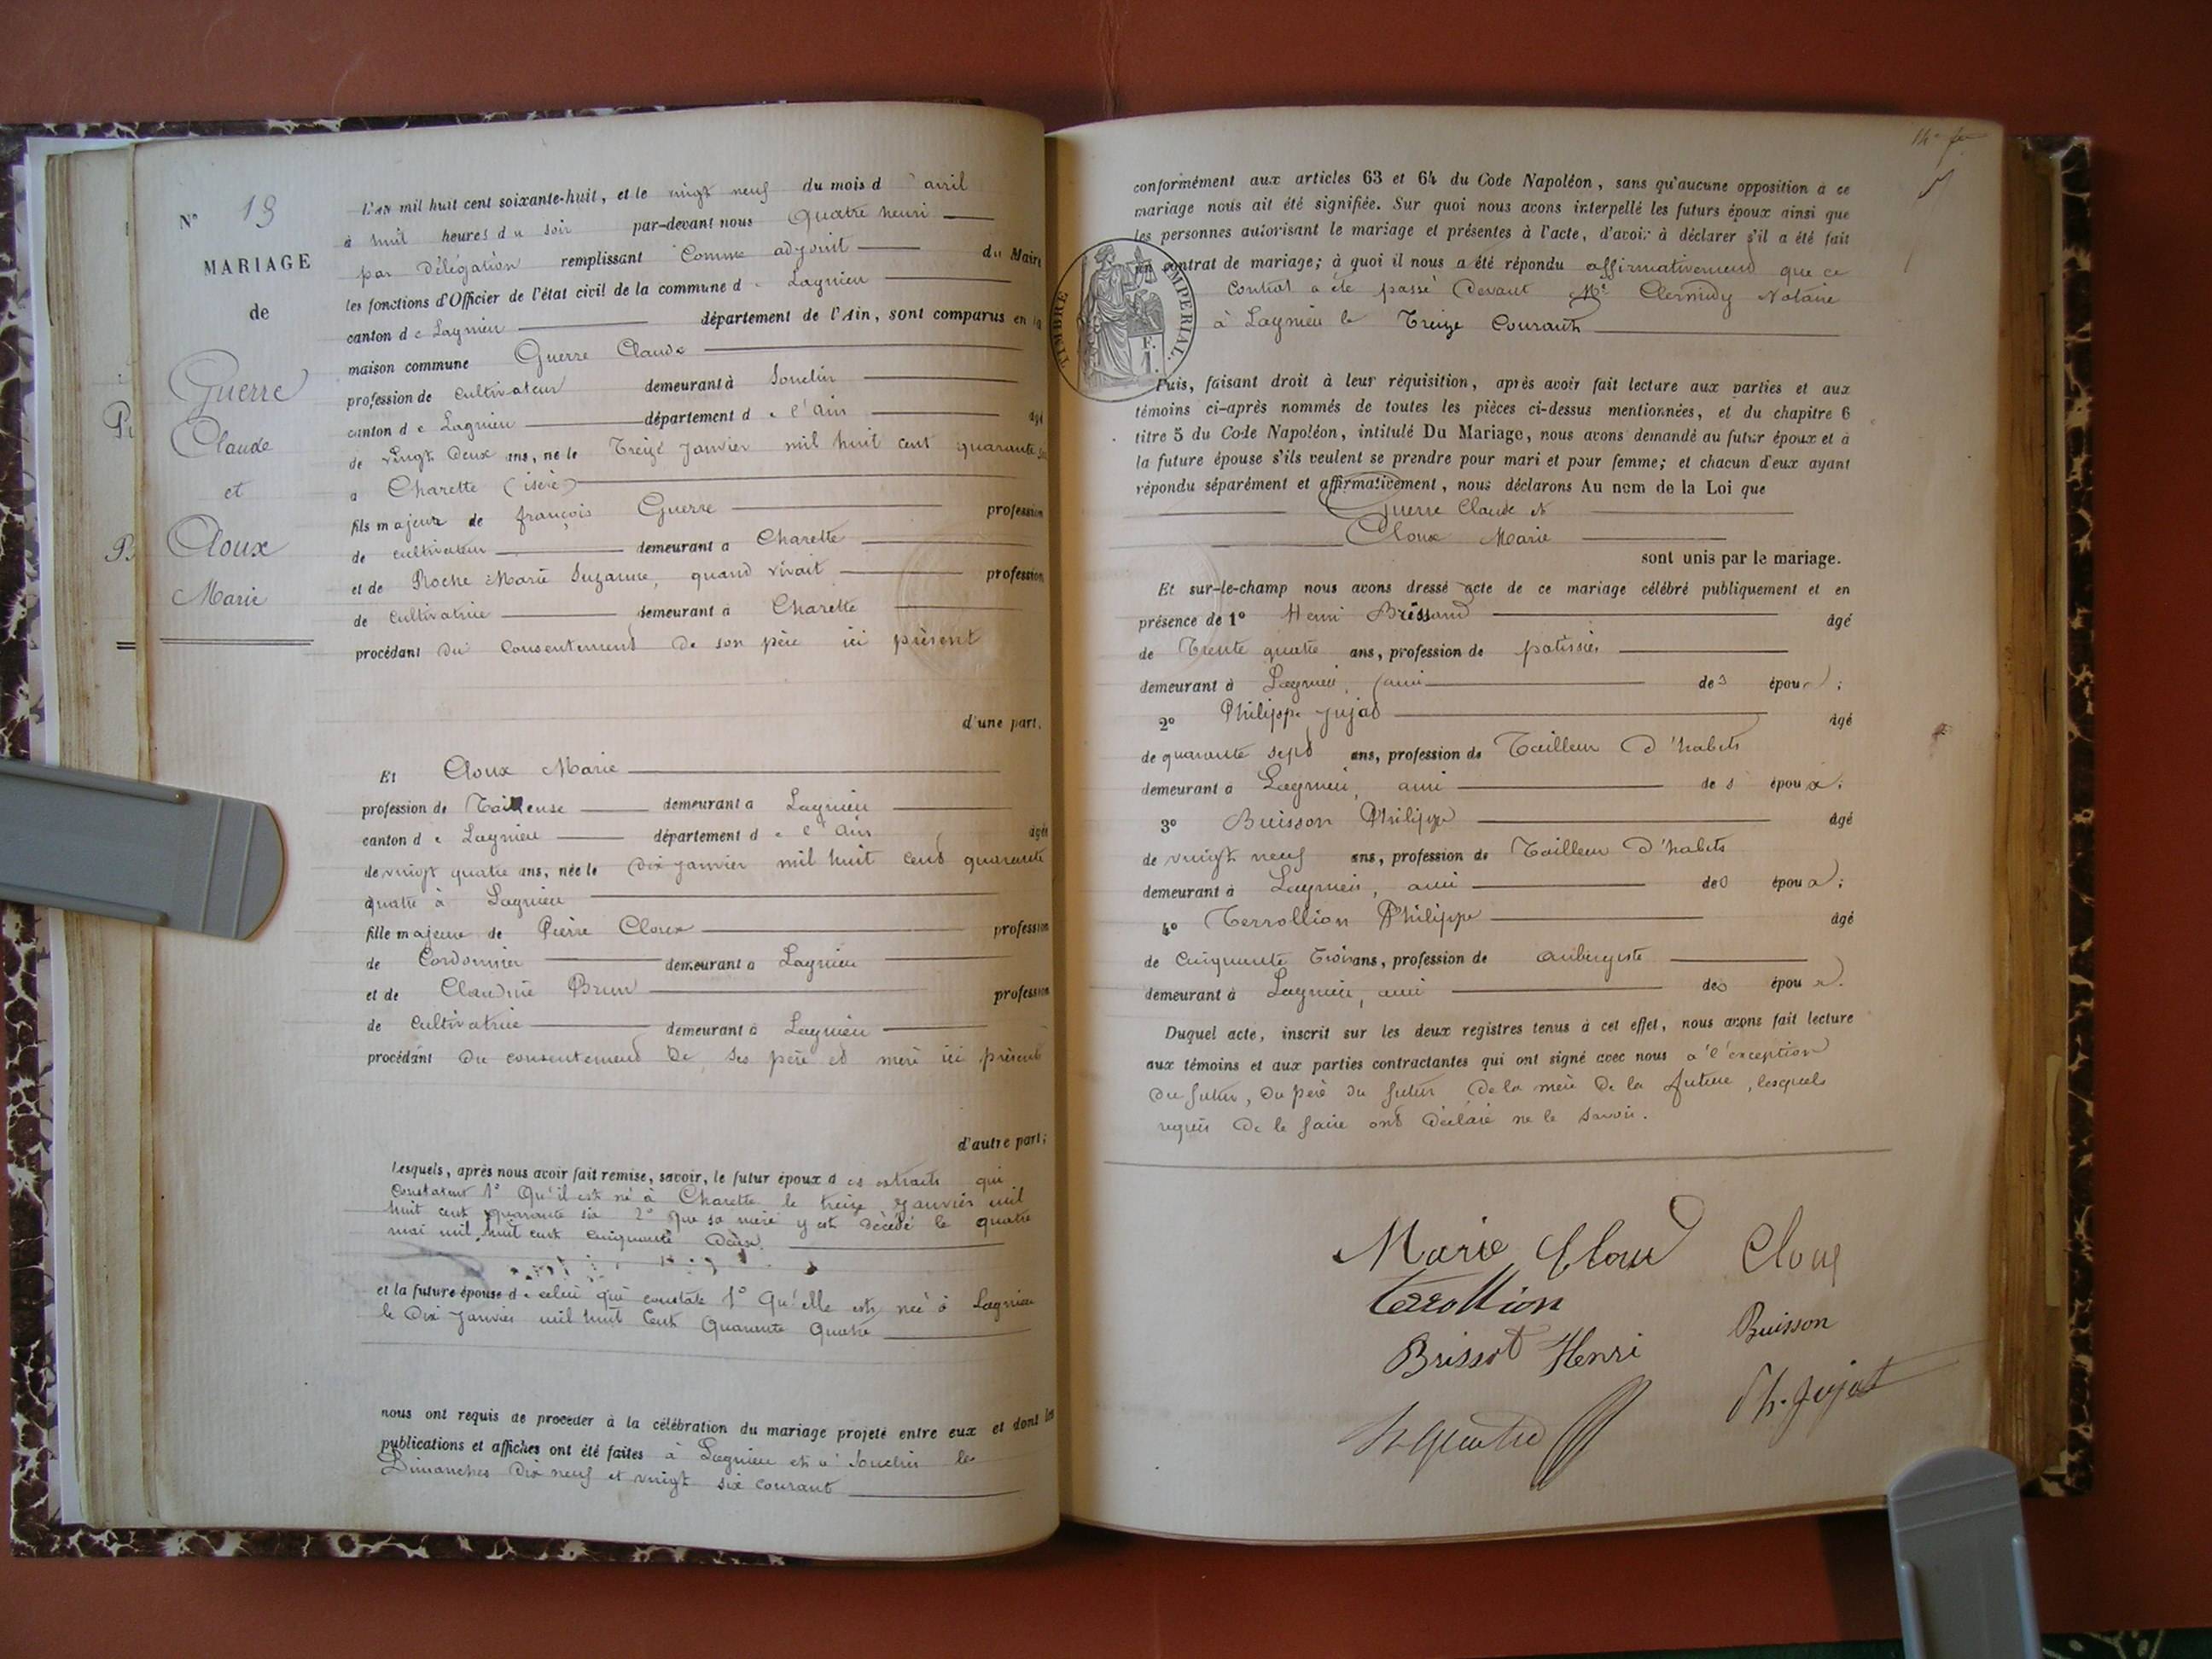 N° 19
MARIAGE
de
Guerre
Claude
et
Cloux
Marie
L'AN mil huit cent soixante-huit, et le vingt neuf du mois d'avril
à huit heures du soir par-devant nous Quatre henri
par Délégation remplissant Comme adjoint du Maire
les fonctions d'Officier de l'état civil de la commune de Lagnieu
canton de Lagnieu département de l'Ain, sont comparus en la
maison commune Guerre Claude
profession de cultivateur demeurant à Souclin
canton de Lagnieu département de l'Ain âgé
de vingt Deux ans, né le Treize Janvier mil huit cent quarante six
à Charette (isère)
fils majeur de françois Guerre profession
de cultivateur demeurant à Charette
et de Roche Marie Suzanne, quand vivait profession
de cultivatrice demeurant à Charette
procédant du Consentement de son père ici présent
d'une part.
Et Cloux Marie
profession de Tailleuse demeurant à Lagnieu
canton de Lagnieu département de l'Ain âgée
de vingt quatre ans, née le Dix Janvier mil huit cent quarante
quatre à Lagnieu
fille majeure de Pierre Cloux profession
de Cordonnier demeurant à Lagnieu
et de Claudine Brun profession
de Cultivatrice demeurant à Lagnieu
procédant du consentement de ses père et mère ici présents
d'autre part;
Lesquels, après nous avoir fait remise, savoir, le futur époux des extraits qui
Constatent 1° Qu'il est né à Charette le treize Janvier mil
huit cent quarante six 2° Que sa mère y est décédé le quatre
mai mil huit cent cinquante Deux.
et la future épouse de celui qui constate 1° Qu'elle est née à Lagnieu
le Dix Janvier mil huit Cent Quarante Quatre
nous ont requis de procéder à la célébration du mariage projeté entre eux et dont les
publications et affiches ont été faites à Lagnieu et à Souclin les
Dimanches Dix neuf et vingt six courant
conformément aux articles 63 et 64 du Code Napoléon, sans qu'aucune opposition à ce
mariage nous ait été signifiée. Sur quoi nous avons interpellé les futurs époux ainsi que
les personnes autorisant le mariage et présentes à l'acte, d'avoir à déclarer s'il a été fait
un contrat de mariage; à quoi il nous a été répondu affirmativement que ce
Contrat a été passé Devant Me Clermidy Notaire
à Lagnieu le Treize Courant
TIMBRE IMPERIAL.
1 F.
Puis, faisant droit à leur réquisition, après avoir fait lecture aux parties et aux
témoins ci-après nommés de toutes les pièces ci-dessus mentionnées, et du chapitre 6
titre 5 du Code Napoléon, intitulé Du Mariage, nous avons demandé au futur époux et à
la future épouse s'ils veulent se prendre pour mari et pour femme; et chacun d'eux ayant
répondu séparément et affirmativement, nous déclarons Au nom de la Loi que
Guerre Claude et
Cloux Marie
sont unis par le mariage.
Et sur-le-champ nous avons dressé acte de ce mariage célébré publiquement et en
présence de 1° Henri Brissand âgé
de Trente quatre ans, profession de patissier
demeurant à Lagnieu, ami des époux;
2° Philippe Jujat âgé
de quarante sept ans, profession de Tailleur d'habits
demeurant à Lagnieu, ami des époux;
3° Buisson Philippe âgé
de vingt neuf ans, profession de Tailleur d'habits
demeurant à Lagnieu, ami des époux;
4° Terrollion Philippe âgé
de Cinquante Trois ans, profession de aubergiste
demeurant à Lagnieu, ami des époux.
Duquel acte, inscrit sur les deux registres tenus à cet effet, nous avons fait lecture
aux témoins et aux parties contractantes qui ont signé avec nous a l'exception
Du futur, Du père du futur De la mère De la future, lesquels
requis De le faire ont Déclaré ne le savoir.
Marie Cloux Cloux
Terrollion
Buisson
Brissot Henri
Ph. Jujat
H Quatre